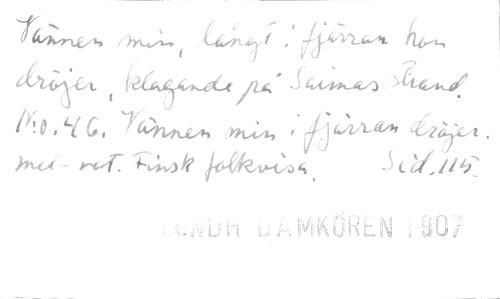 Vännen min, långt i fjärran hon
dröjer, klagande på Saimas strand.
N:o. 46. Vännen min i fjärran dröjer.
mel-not. Finsk folkvisa. Sid. 115.
LUNDH DAMKÖREN 1907